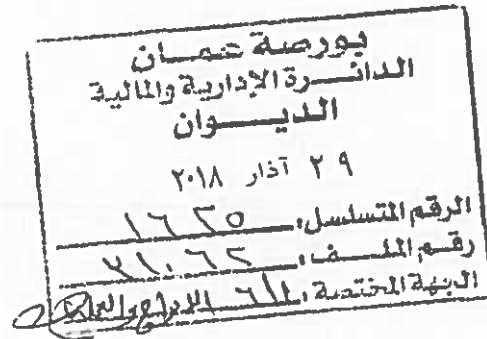 بورصة عمان
الدائرة الإدارية والمالية
الديوان
٢٩ آذار ٢٠١٨
الرقم المتسلسل: ١٦٣٥
رقم الملف:
الجهة المختصة: